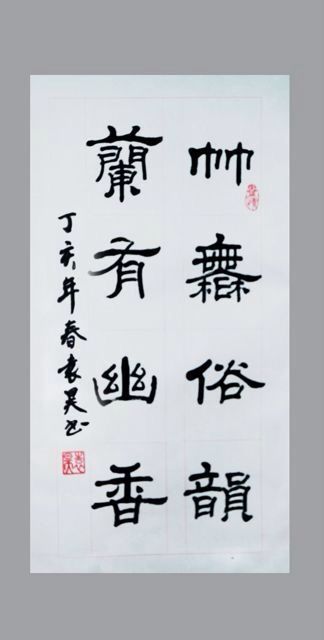 竹無俗韻
蘭有幽香
丁亥年春袁昊书